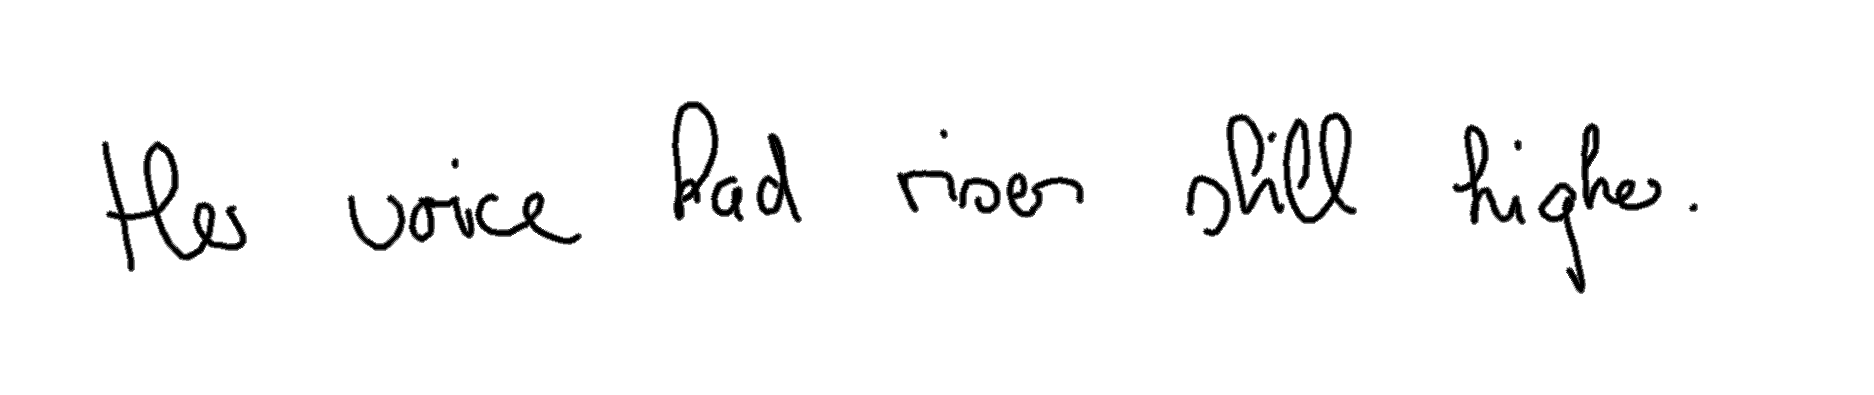 Her voice had risen still higher.